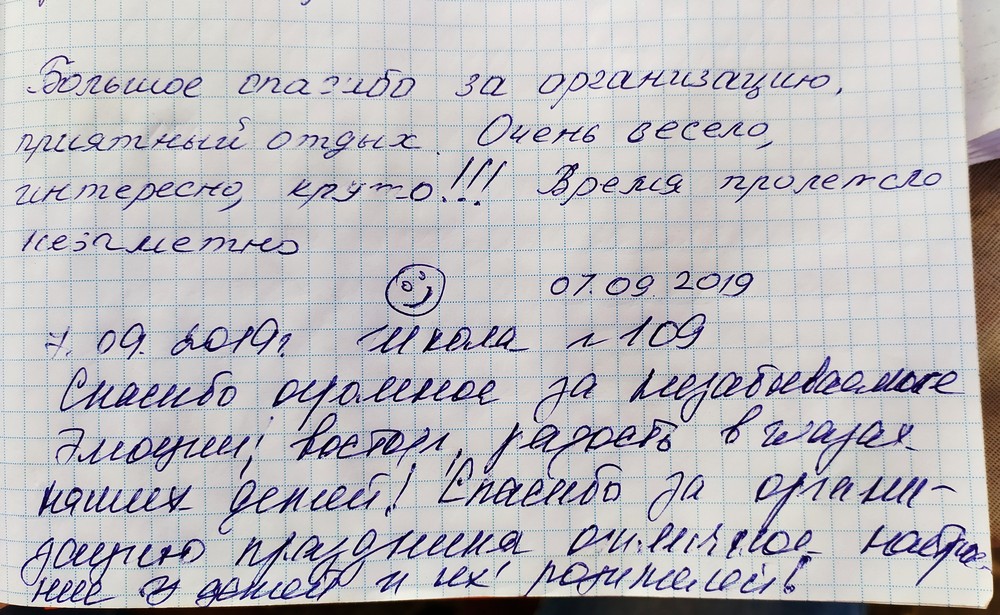 Большое спасибо за организацию,
приятный отдых. Очень весело,
интересно, круто!!! Время пролетело
незаметно
07.09.2019
7.09.2019г. Школа №109
Спасибо огромное за незабываемые
эмоции, восторг, радость в глазах
наших детей! Спасибо за органи-
зацию праздника отличное настрое-
ние у детей и их родителей!